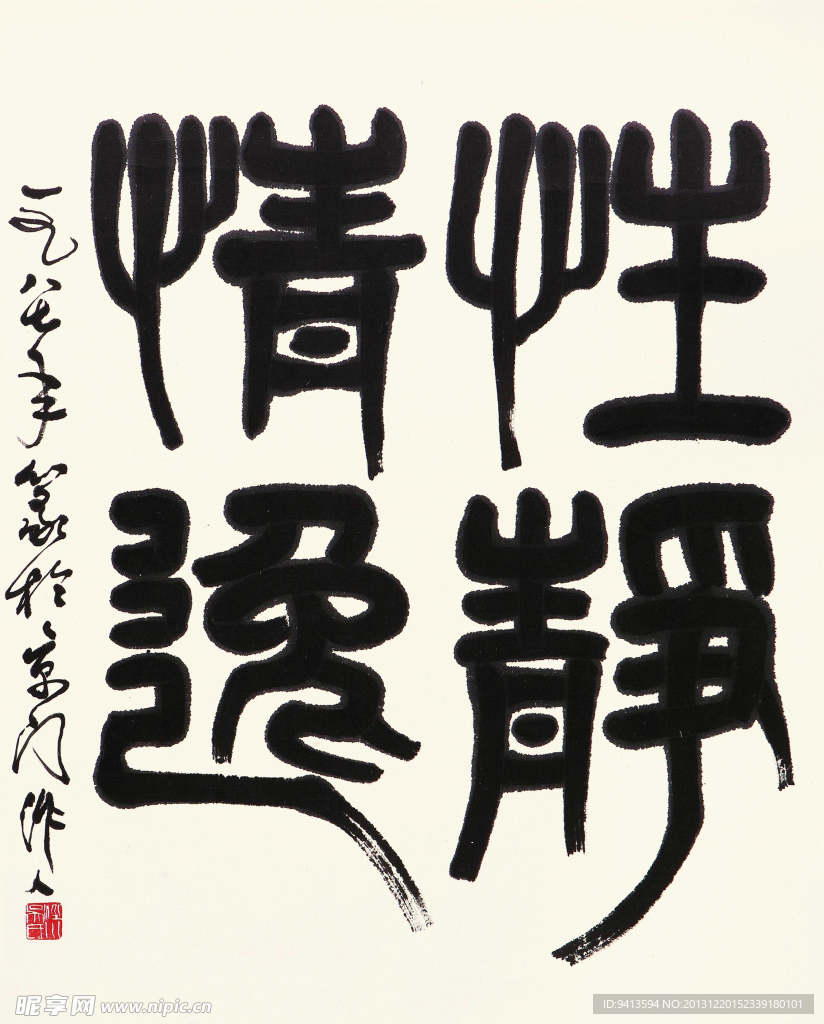 性静
情逸
一九八七年篆於京门沛人
昵享网 www.nipic.cn
ID:9413594 NO:20131220152339180101